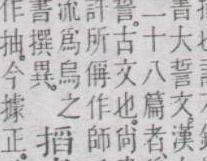 書大誓文漢
二十八篇者
誓。古文也。尚
許所偁作師
流爲烏之
書撰異。
搯
作抽。今據正。